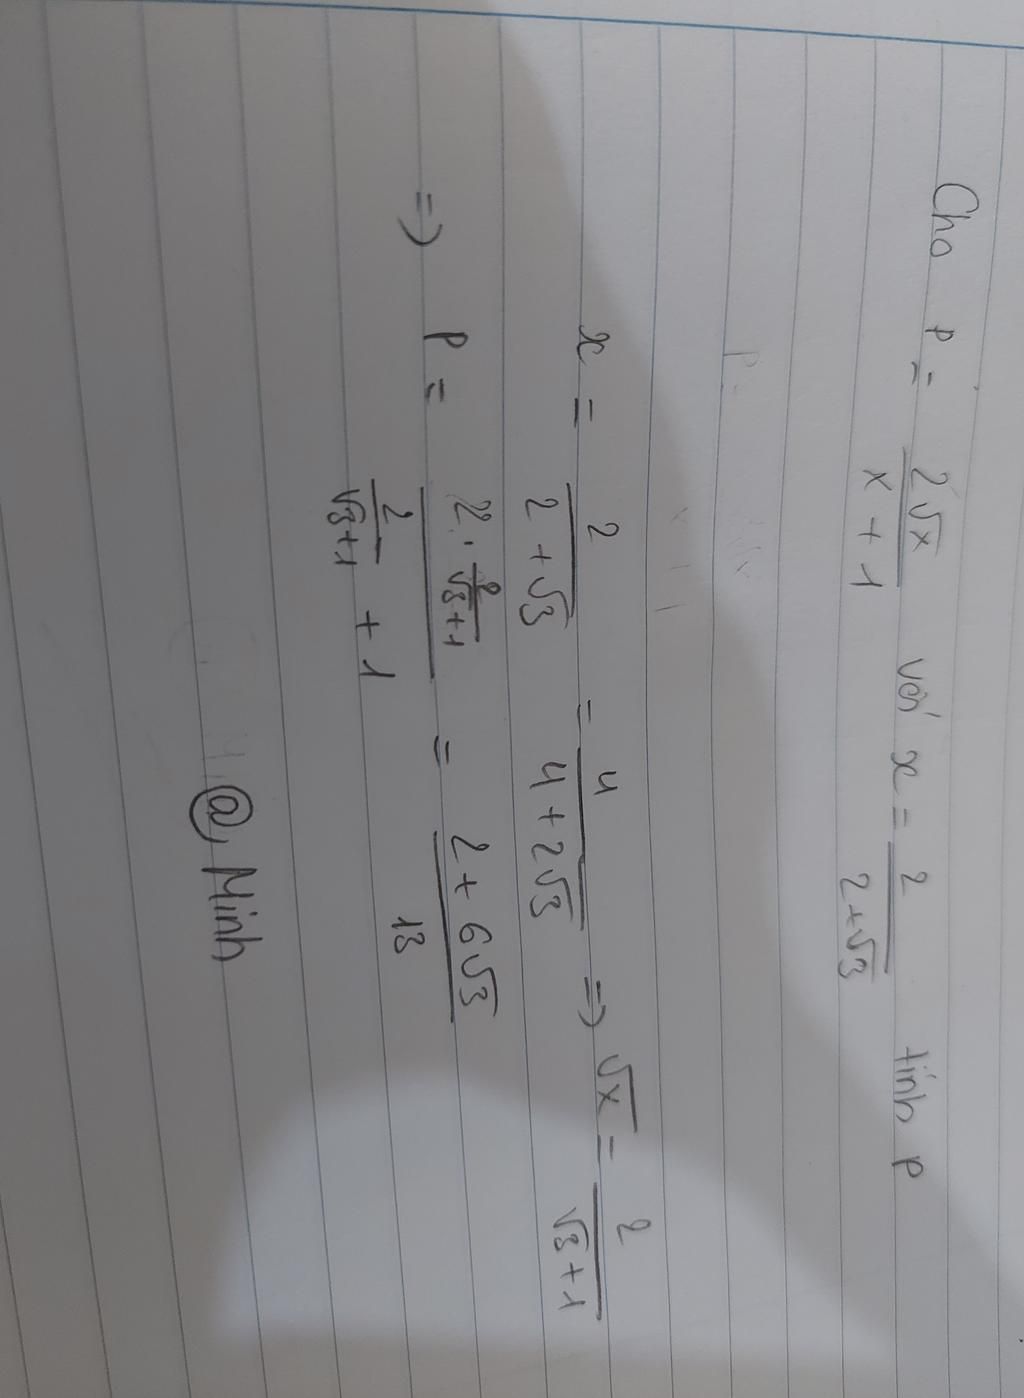 Cho P = 2√x / x + 1 với x = 2 / 2 + √3 tính P
x = 2 / 2 + √3 = 4 / 4 + 2√3 => √x = 2 / √3 + 1
=> P = 2 . 2 / √3 + 1 / 2 / √3 + 1 + 1 = 2 + 6√3 / 13
@ Minh